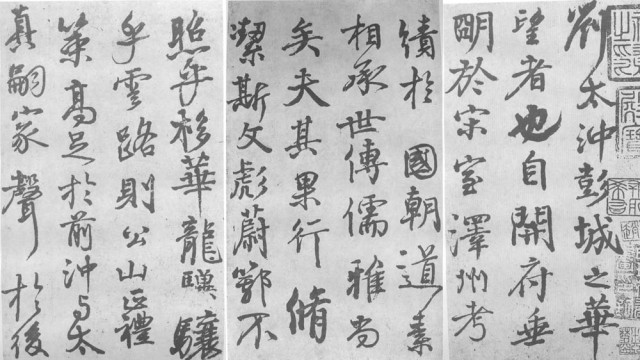 劉太沖彭城之華
望者也自開府垂
明於宋室澤州考
績於國朝道素
相承世傳儒雅尚
矣夫其果行脩
潔斯文彪蔚鄂不
照乎栘華龍驥驤
乎雲路則公山正禮
策高足於前沖与太
真嗣家聲於後